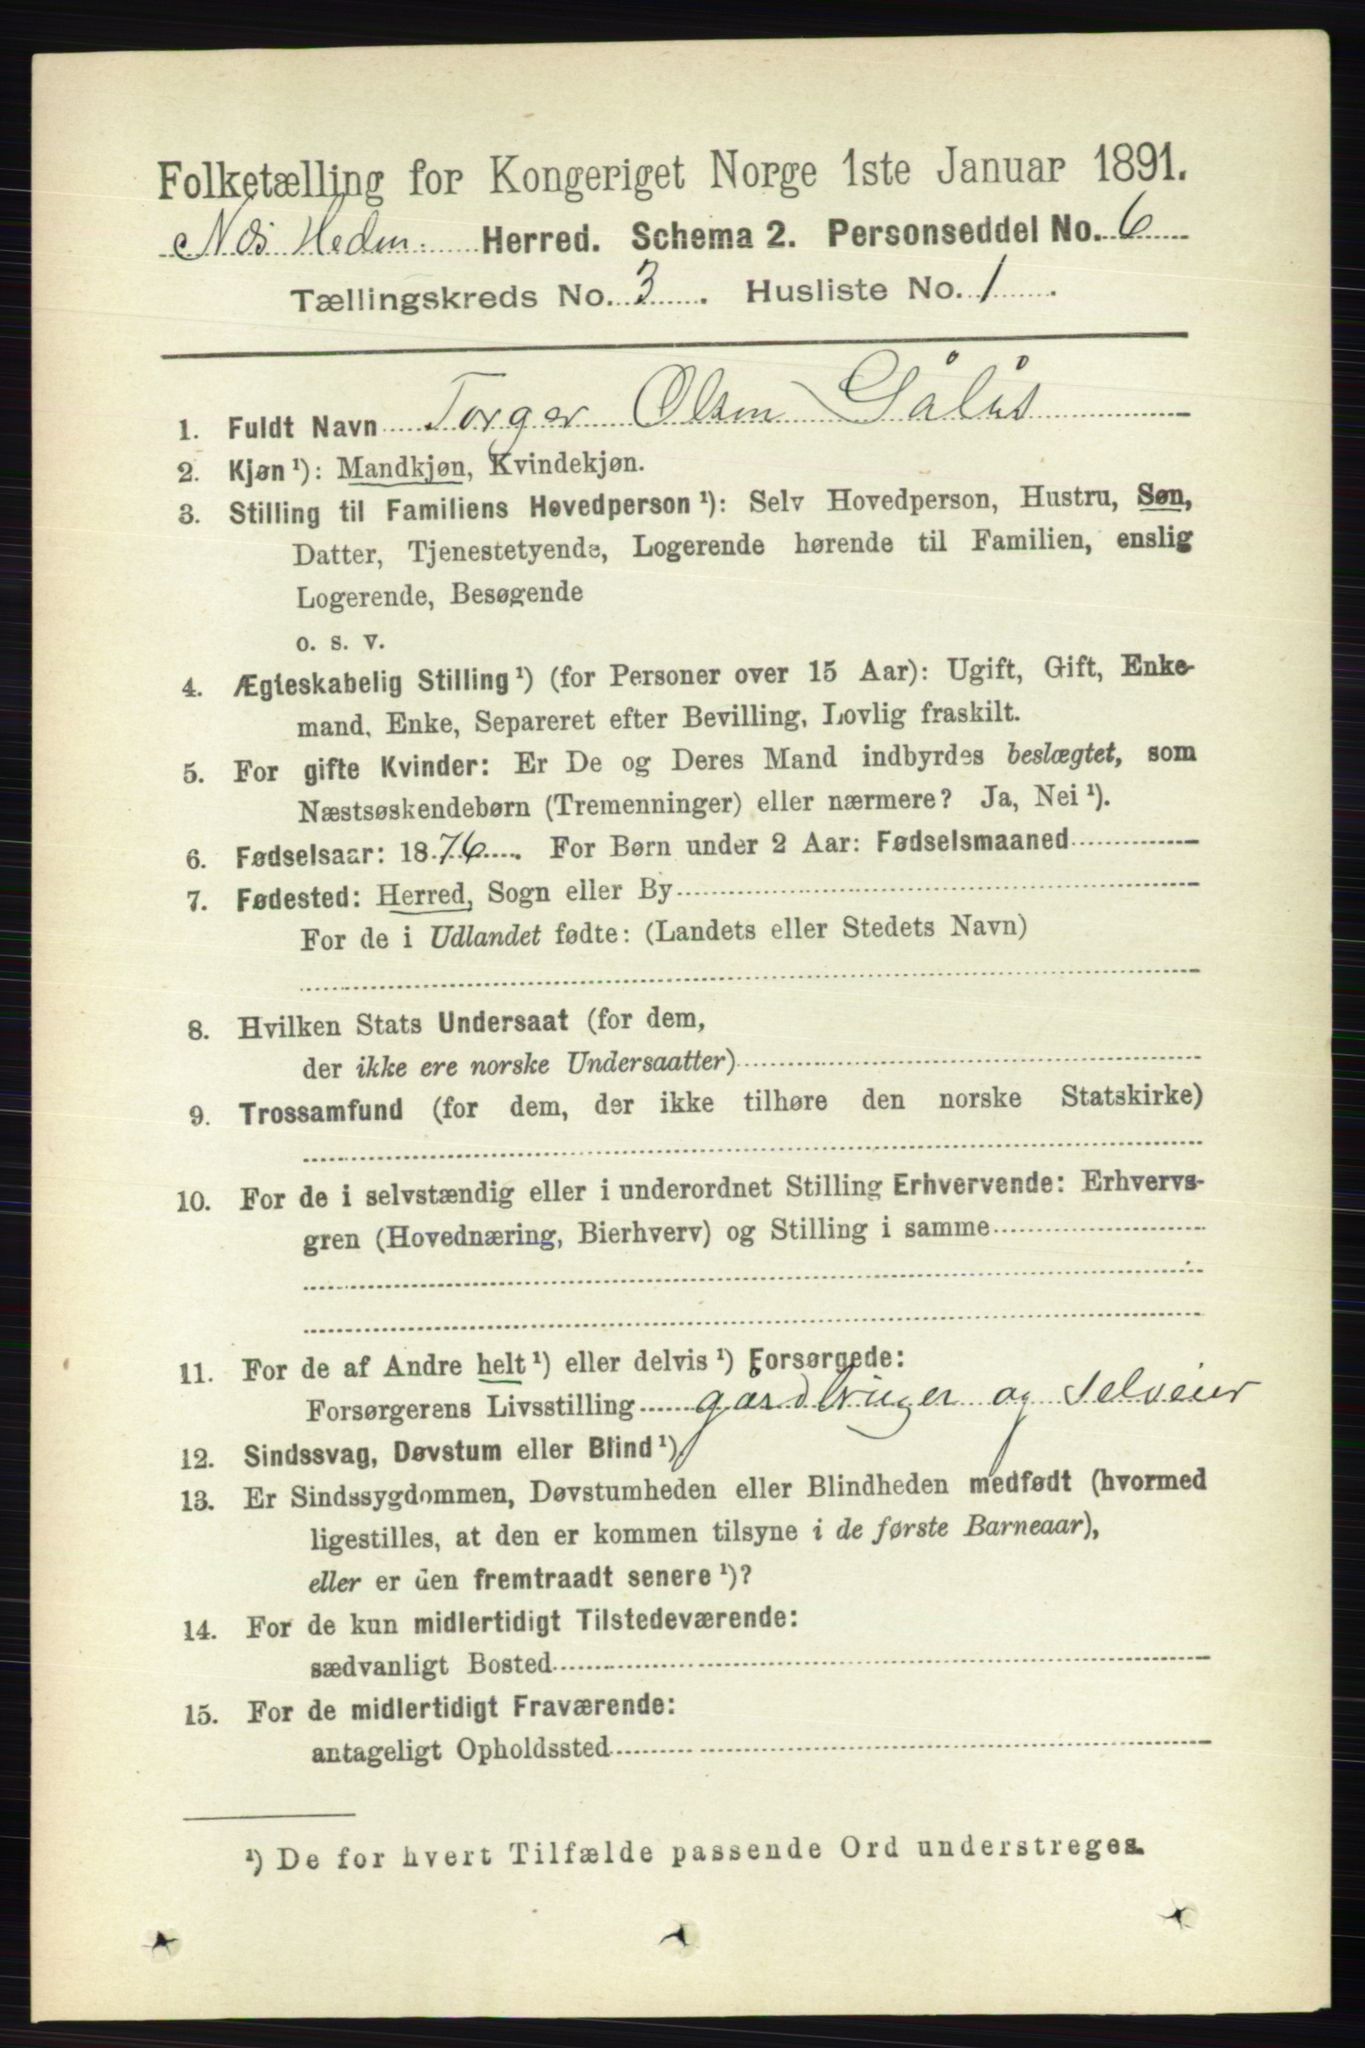 Folketælling for Kongeriget Norge 1ste Januar 1891.
Næs Hedm. Herred. Schema 2. Personseddel No. 6
Tællingskreds No. 3. Husliste No. 1.
1. Fuldt Navn Torger Olsen
2. Kjøn ¹): Mandkjøn, Kvindekjøn.
3. Stilling til Familiens Hovedperson ¹): Selv Hovedperson, Hustru, Søn,
Datter, Tjenestetyende, Logerende hørende til Familien, enslig
Logerende, Besøgende
o. s. v.
4. Ægteskabelig Stilling ¹) (for Personer over 15 Aar): Ugift, Gift, Enke-
mand, Enke, Separeret efter Bevilling, Lovlig fraskilt.
5. For gifte Kvinder: Er De og Deres Mand indbyrdes beslægtet, som
Næstsøskendebørn (Tremenninger) eller nærmere? Ja, Nei ¹).
6. Fødselsaar: 1876. For Børn under 2 Aar: Fødselsmaaned
7. Fødested: Herred, Sogn eller By
For de i Udlandet fødte: (Landets eller Stedets Navn)
8. Hvilken Stats Undersaat (for dem,
der ikke ere norske Undersaatter)
9. Trossamfund (for dem, der ikke tilhøre den norske Statskirke)
10. For de i selvstændig eller i underordnet Stilling Erhvervende: Erhvervs-
gren (Hovednæring, Bierhverv) og Stilling i samme
11. For de af Andre helt ¹) eller delvis ¹) Forsørgede:
Forsørgerens Livsstilling gårdbruger og selveier
12. Sindssvag, Døvstum eller Blind ¹).
13. Er Sindssygdommen, Døvstumheden eller Blindheden medfødt (hvormed
ligestilles, at den er kommen tilsyne i de første Barneaar),
eller er den fremtraadt senere ¹)?
14. For de kun midlertidigt Tilstedeværende:
sædvanligt Bosted
15. For de midlertidigt Fraværende:
antageligt Opholdssted
¹) De for hvert Tilfælde passende Ord understreges.